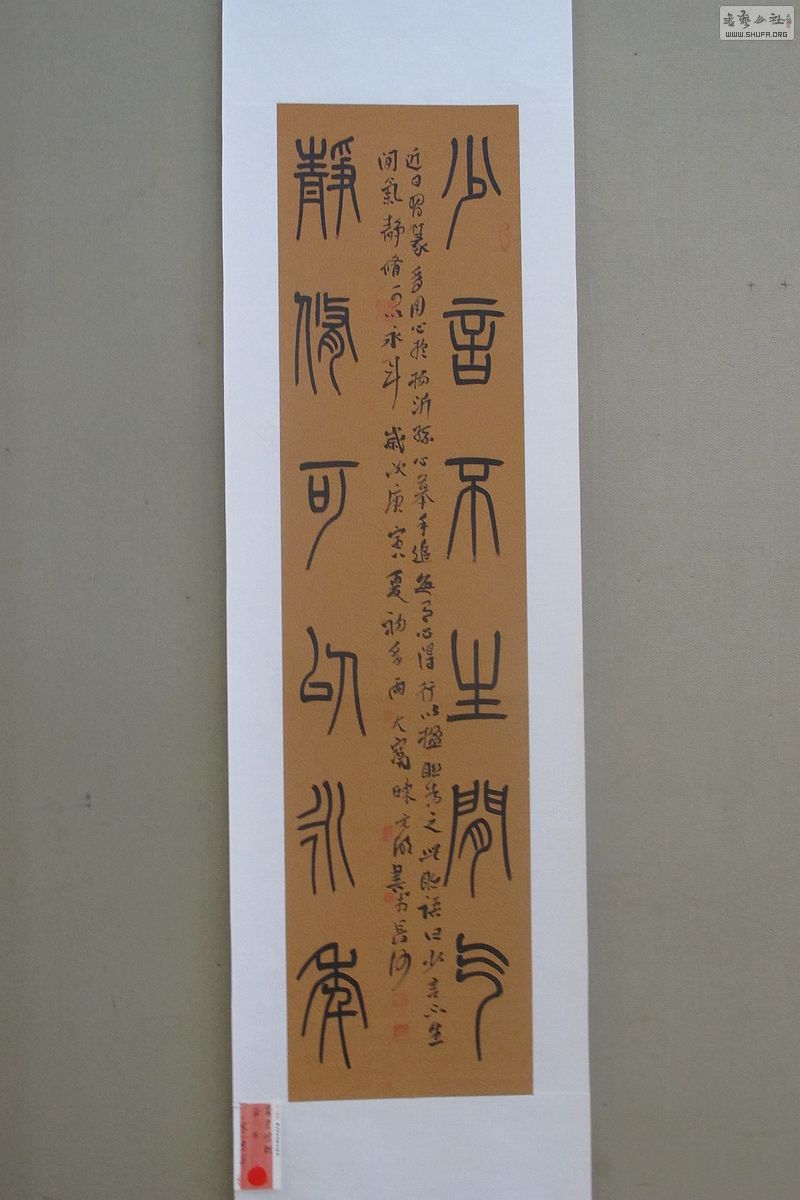 少言不生閒气
靜修可以永年
近日習篆多用心於楊沂孫心摹手追每有心得行以楹聯書之此聯語曰少言不生
閒氣靜脩可以永年歲次庚寅夏初多雨大
書長沙
書藝公社
WWW.SHUFA.ORG